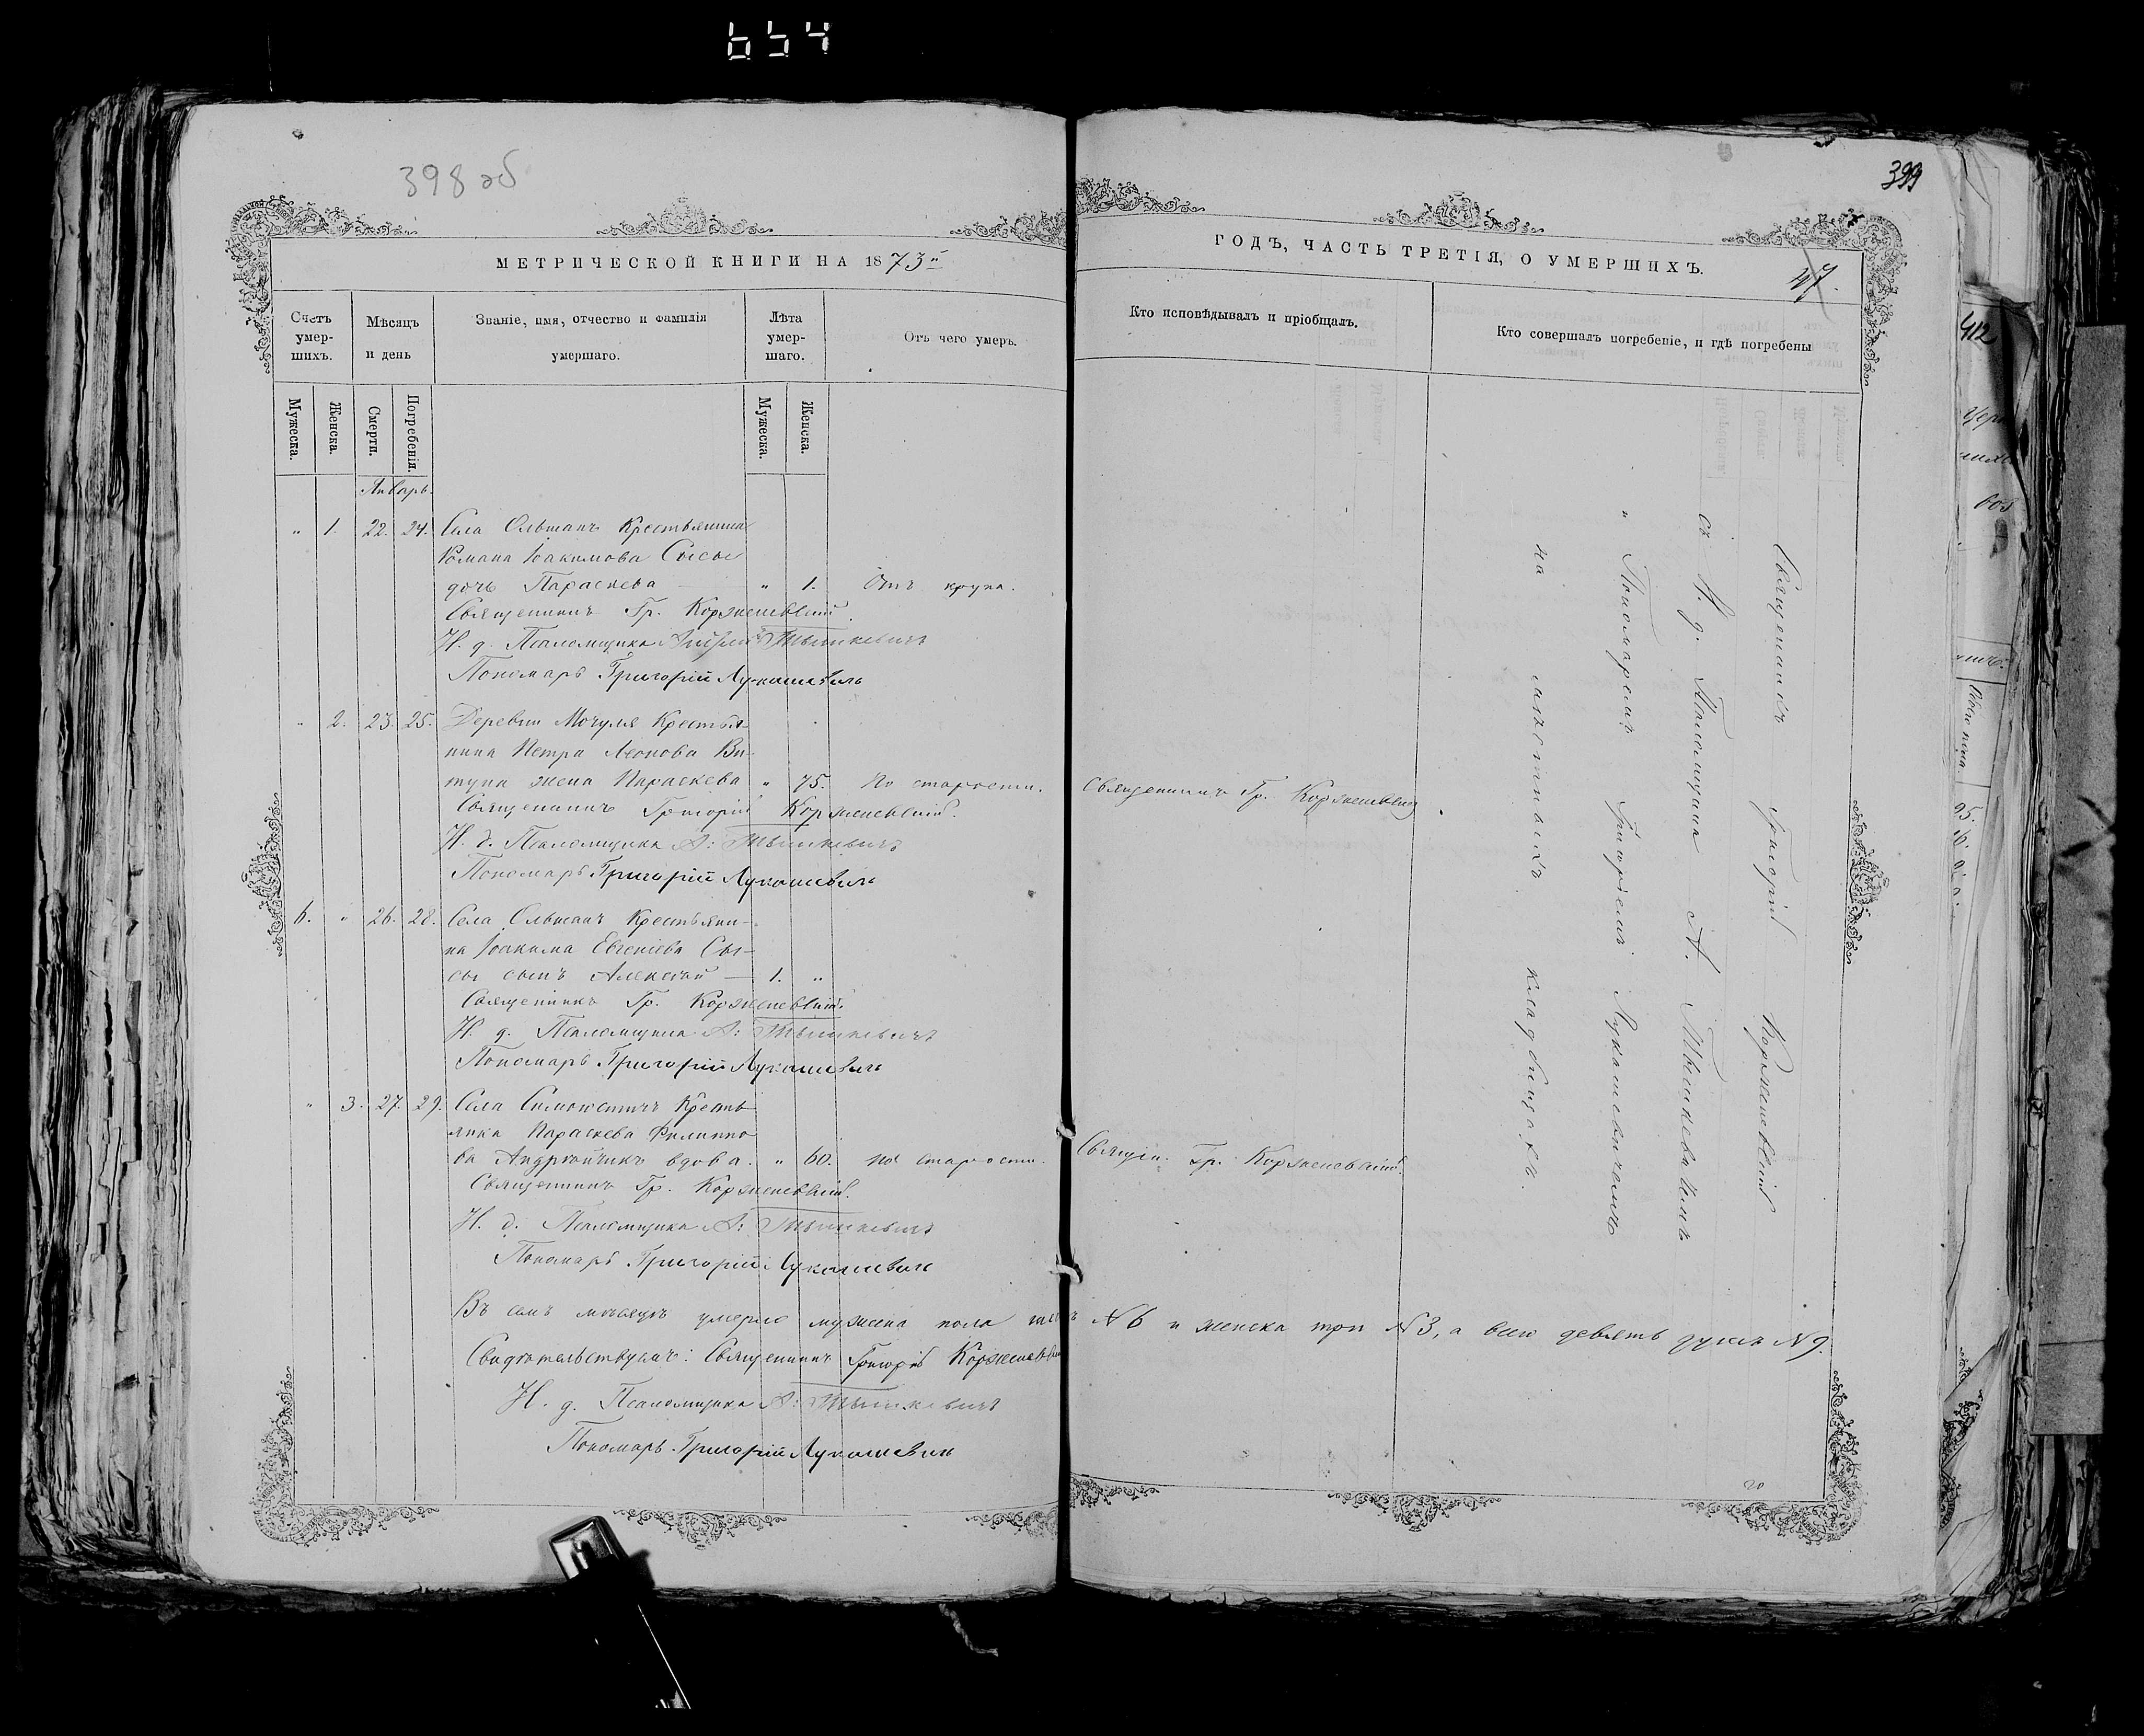 654
398 об
399
МЕТРИЧЕСКОЙ КНИГИ НА 1873й
ГОДЪ, ЧАСТЬ ТРЕТІЯ, О УМЕРШИХЪ.
47.
Счетъ умер-шихъ.
Мѣсяцъ и день
Званіе, имя, отчество и фамилія умершаго.
Лѣта умер-шаго.
Отъ чего умеръ.
Кто исповѣдывалъ и пріобщалъ.
Кто совершалъ погребеніе, и гдѣ погребены
Мужеска.
Женска.
Смерти.
Погребенія.
Мужеска.
Женска.
Январь.
" 1. 22. 24. Села Ольшанъ Крестьянина
Романа Іоакимова Сысы
дочь Параскева " 1. Отъ крупа.
Священникъ Гр. Корженевскій.
И. д. Псаломщика Тышкевичъ
Пономарь Григорій Лукашевичъ
" 2. 23. 25. Деревни Мочуля Крестья-
нина Петра Леонова Ви-
туна жена Параскева " 75. По старости. Священникъ Гр. Корженевскій
Священникъ Григорій Корженевскій.
И. д. Псаломщика А: Тышкевичъ
Пономарь Григорій Лукашевичъ
6. " 26. 28. Села Ольшанъ Крестьяни-
на Іоакима Евгеніева Сы-
сы сынъ Алексѣй 1. "
Священникъ Гр. Корженевскій.
И. д. Псаломщика А: Тышкевичъ
Пономарь Григорій Лукашевичъ
" 3. 27. 29. Села Крестья
янка Параскева Филиппо
ва вдова. " 60. по старости. Священ. Гр. Корженевскій.
Священникъ Гр. Корженевскій.
И. д. Псаломщика А: Тышкевичъ
Пономарь Григорій Лукашевичъ
Въ семъ мѣсяцѣ умерло мужеска пола шесть N 6 и женска три N 3, а всего девять душъ N 9.
Свидѣтельствуемъ: Священникъ Григорій Корженевскій
И. д. Псаломщика А: Тышкевичъ
Пономарь Григорій Лукашевичъ
Священникъ Григорій Корженевскій
съ И. д. Псаломщика А. Тышкевичемъ
" Пономаремъ Григоріемъ Лукашевичемъ
на мѣстныхъ кладбищахъ.
20
412